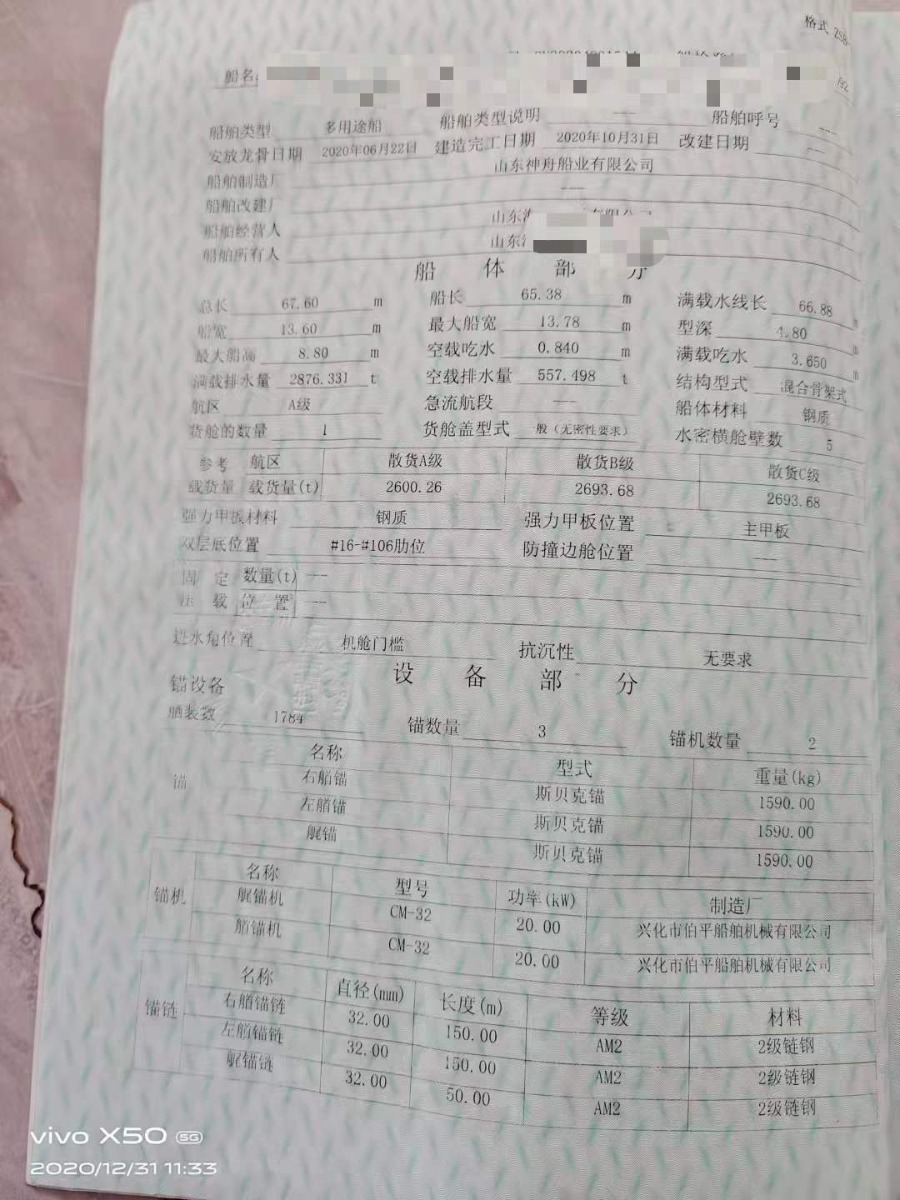 格式 2SB-
船名
船舶类型 多用途船 船舶类型说明 —— 船舶呼号
安放龙骨日期 2020年06月22日 建造完工日期 2020年10月31日 改建日期
船舶制造厂 山东神舟船业有限公司
船舶改建厂 ——
船舶经营人 山东
船舶所有人 山东
船 体 部 分
总长 67.60 m 船长 65.38 m 满载水线长 66.88 m
船宽 13.60 m 最大船宽 13.78 m 型深 4.80 m
最大船高 8.80 m 空载吃水 0.840 m 满载吃水 3.650 m
满载排水量 2876.331 t 空载排水量 557.498 t 结构型式 混合骨架式
航区 A级 急流航段 —— 船体材料 钢质
货舱的数量 1 货舱盖型式 一般(无密性要求) 水密横舱壁数 5
参考 航区 散货A级 散货B级 散货C级
载货量 载货量(t) 2600.26 2693.68 2693.68
强力甲板材料 钢质 强力甲板位置 主甲板
双层底位置 #16-#106肋位 防撞边舱位置 ——
固 定 数量(t) ——
压 载 位 置 ——
进水角位置 机舱门槛 抗沉性 无要求
设 备 部 分
锚设备
舾装数 1784 锚数量 3 锚机数量 2
名称 型式 重量(kg)
锚 右艏锚 斯贝克锚 1590.00
左艏锚 斯贝克锚 1590.00
艉锚 斯贝克锚 1590.00
名称 型号 功率(kW) 制造厂
锚机 艉锚机 CM-32 20.00 兴化市伯平船舶机械有限公司
艏锚机 CM-32 20.00 兴化市伯平船舶机械有限公司
名称 直径(mm) 长度(m) 等级 材料
锚链 右艏锚链 32.00 150.00 AM2 2级链钢
左艏锚链 32.00 150.00 AM2 2级链钢
艉锚链 32.00 50.00 AM2 2级链钢
vivo X50 5G
2020/12/31 11:33